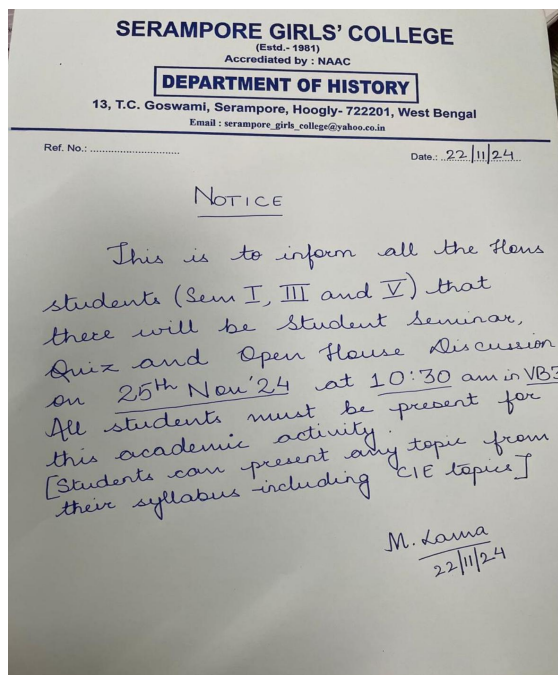 SERAMPORE GIRLS' COLLEGE
(Estd.- 1981)
Accrediated by : NAAC
DEPARTMENT OF HISTORY
13, T.C. Goswami, Serampore, Hoogly- 722201, West Bengal
Email : serampore_girls_college@yahoo.co.in
Ref. No.: ..............................
Date.: 22/11/24
NOTICE
This is to inform all the Hons
students (Sem I, III and V) that
there will be Student Seminar,
Quiz and Open House Discussion
on 25th Nov'24 at 10:30 am in VB3
All students must be present for
this academic activity.
[Students can present any topic from
their syllabus including CIE topics]
M. Lama
22/11/24